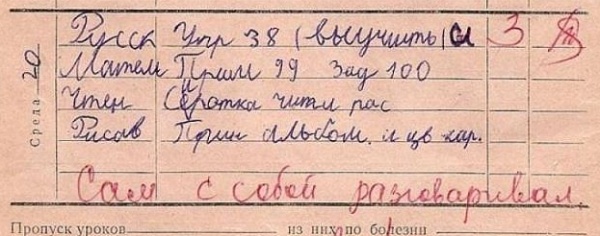 Среда 20
Русск Упр 38 (выучить) и 3
Матем Прим 99 Зад 100
Чтен Сёротка читл рас
Рисов Прин альбом. и цв кар.
Сам с собой разговаривал.
Пропуск уроков из них по болезни